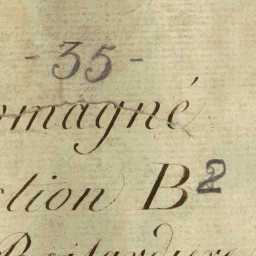 - 35 -
omagné
ction B2